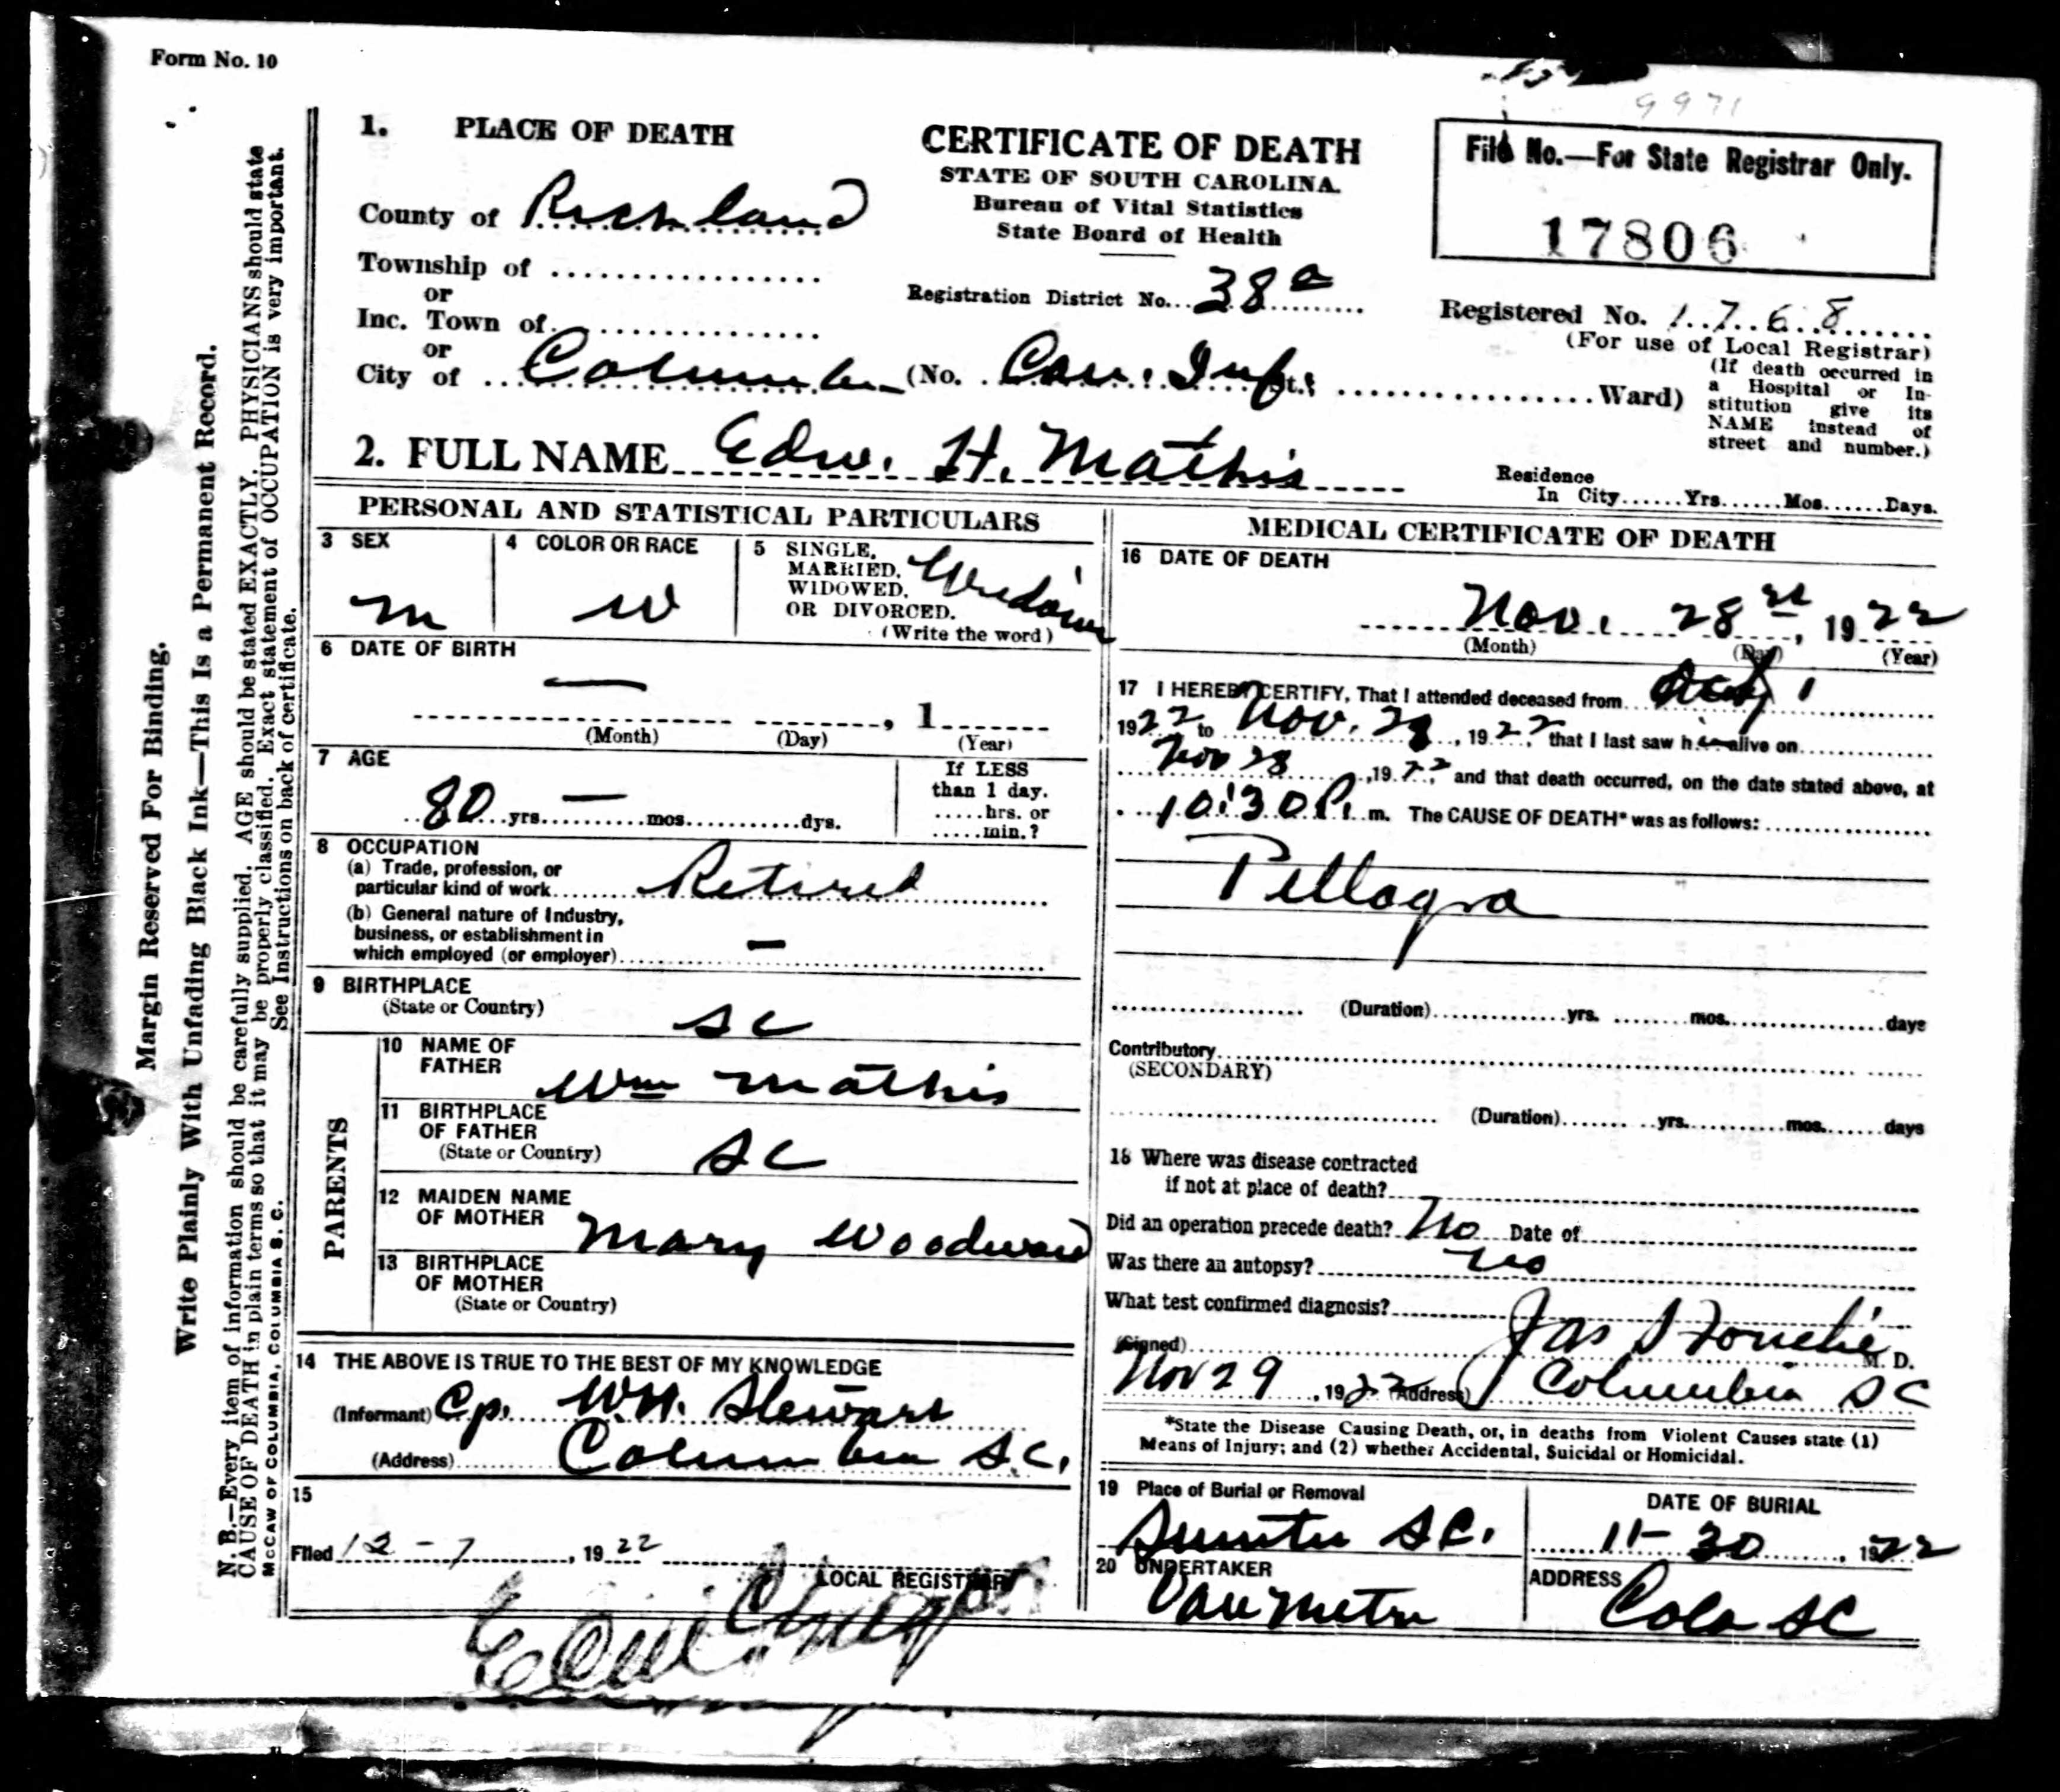 Form No. 10
9971
1. PLACE OF DEATH
County of Richland
Township of
or
Inc. Town of
or
City of Columbia (No. Con. Inf. St.; Ward)
CERTIFICATE OF DEATH
STATE OF SOUTH CAROLINA.
Bureau of Vital Statistics
State Board of Health
Registration District No. 38a
File No.—For State Registrar Only.
17806
Registered No. 1768
(For use of Local Registrar)
(If death occurred in
a Hospital or In-
stitution give its
NAME instead of
street and number.)
2. FULL NAME Edw. H. Mathis
Residence
In City......Yrs......Mos......Days.
PERSONAL AND STATISTICAL PARTICULARS
3 SEX
m
4 COLOR OR RACE
w
5 SINGLE,
MARRIED,
WIDOWED,
OR DIVORCED.
(Write the word)
Widower
6 DATE OF BIRTH
—
, 1
(Month) (Day) (Year)
7 AGE
80 yrs. — mos. dys.
If LESS
than 1 day.
.....hrs. or
.....min.?
8 OCCUPATION
(a) Trade, profession, or
particular kind of work Retired
(b) General nature of Industry,
business, or establishment in
which employed (or employer) —
9 BIRTHPLACE
(State or Country) SC
PARENTS
10 NAME OF
FATHER Wm Mathis
11 BIRTHPLACE
OF FATHER
(State or Country) SC
12 MAIDEN NAME
OF MOTHER Mary Woodward
13 BIRTHPLACE
OF MOTHER
(State or Country)
14 THE ABOVE IS TRUE TO THE BEST OF MY KNOWLEDGE
(Informant) Cp. W.H. Stewart
(Address) Columbia S.C.
15
Filed 12-7, 1922
LOCAL REGISTRAR
MEDICAL CERTIFICATE OF DEATH
16 DATE OF DEATH
Nov. 28, 1922
(Month) (Day) (Year)
17 I HEREBY CERTIFY, That I attended deceased from 1
1922 to Nov. 28, 1922, that I last saw him alive on
Nov 28, 1922, and that death occurred, on the date stated above, at
10:30 P. m. The CAUSE OF DEATH* was as follows:
Pellagra
(Duration) yrs. mos. days
Contributory
(SECONDARY)
(Duration) yrs. mos. days
18 Where was disease contracted
if not at place of death?
Did an operation precede death? No Date of
Was there an autopsy? No
What test confirmed diagnosis?
(Signed) Jas Fouché M. D.
Nov 29, 1922 (Address) Columbia SC
*State the Disease Causing Death, or, in deaths from Violent Causes state (1)
Means of Injury; and (2) whether Accidental, Suicidal or Homicidal.
19 Place of Burial or Removal
Sumter S.C.
DATE OF BURIAL
11-30, 1922
20 UNDERTAKER
Van Metre
ADDRESS
Cola SC
Margin Reserved For Binding.
Write Plainly With Unfading Black Ink—This Is a Permanent Record.
N. B.—Every item of information should be carefully supplied. AGE should be stated EXACTLY. PHYSICIANS should state
CAUSE OF DEATH in plain terms so that it may be properly classified. Exact statement of OCCUPATION is very important.
See Instructions on back of certificate.
McCAW OF COLUMBIA, COLUMBIA S. C.